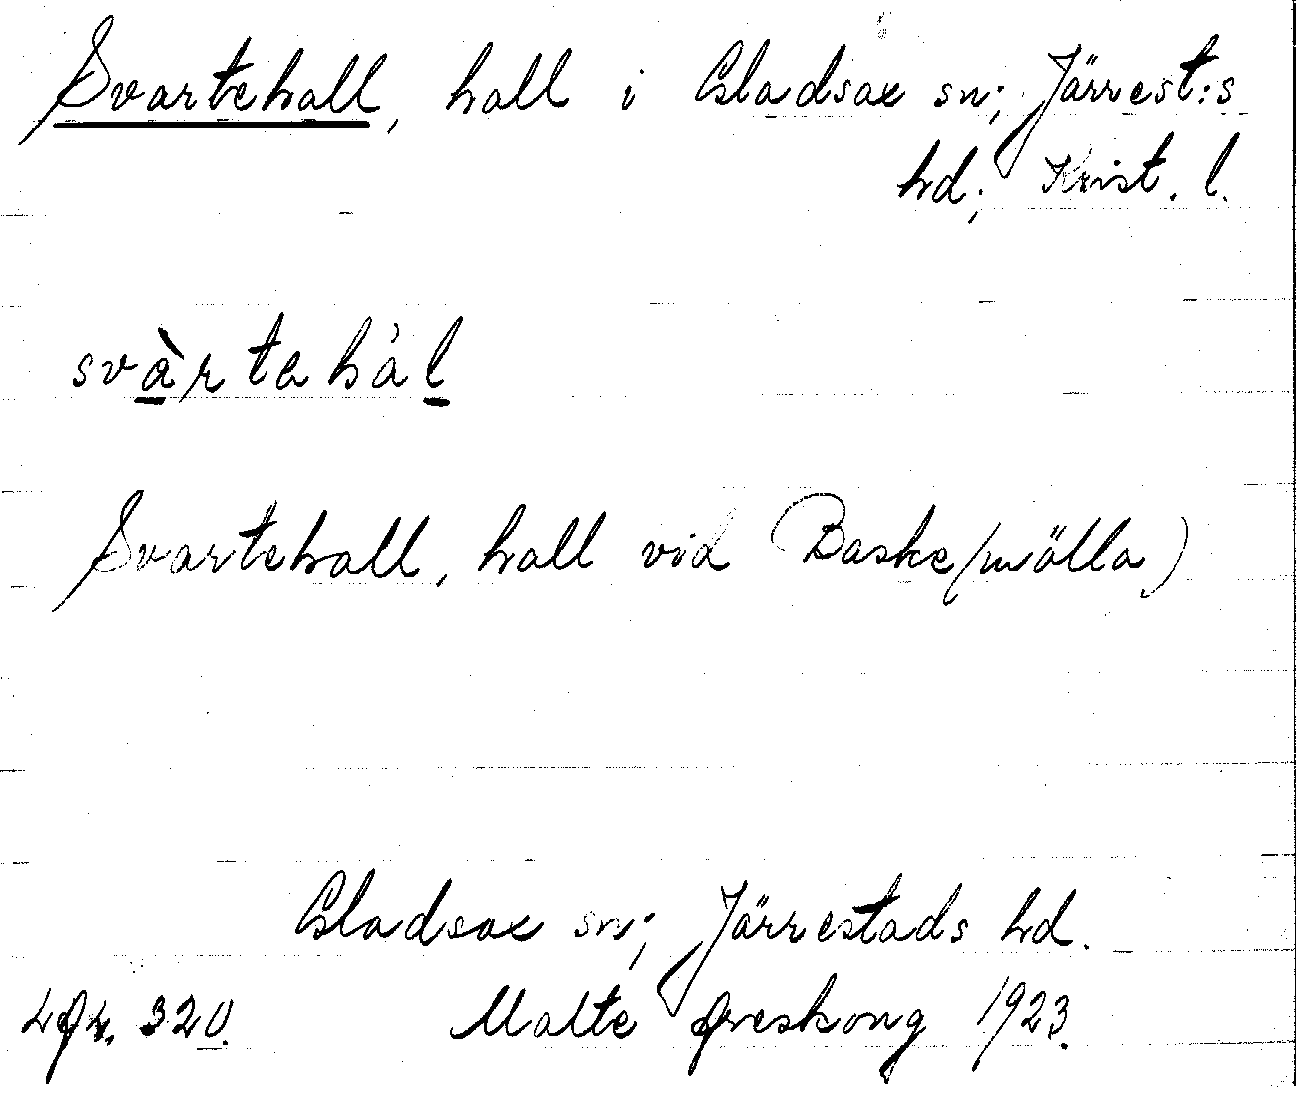 Svartehall, hall i Gladsax sn; Järrest:s
hd; Krist. l.
svàrtahål
Svartehall, hall vid Baske(mölla)
Gladsax sn; Järrestads hd.
320. Malte Øreskong 1923.